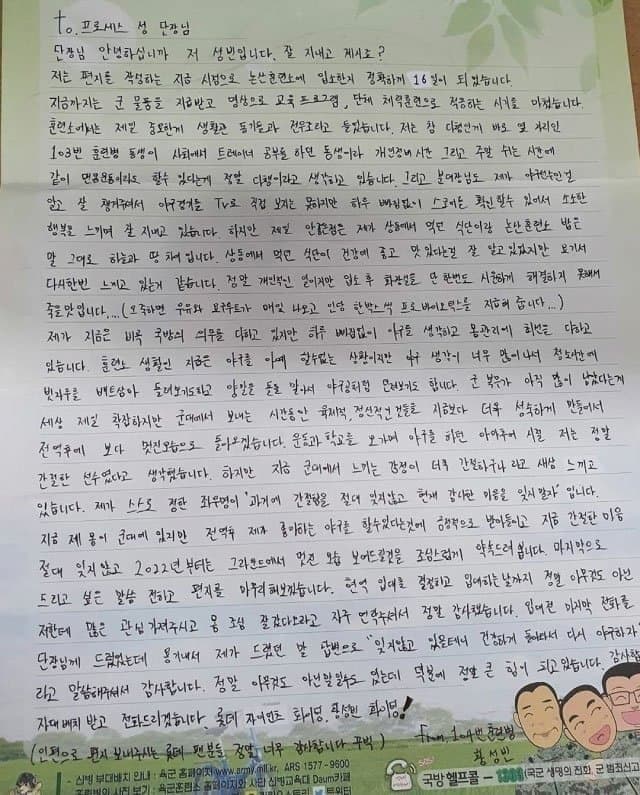 to. 프로세스 성 단장님
단장님 안녕하십니까 저 성빈입니다. 잘 지내고 계시죠?
저는 편지를 작성하는 지금 시점으로 논산훈련소에 입소한지 정확하게 16일이 되었습니다.
지금까지는 군 물품을 지급받고 영상으로 교육 프로그램, 단체 체력훈련으로 적응하는 시기를 마쳤습니다.
훈련소에서는 제일 중요한게 생활관 동기들과 전우조라고 들었습니다. 저는 참 다행인게 바로 옆 자리인
103번 훈련병 동생이 사회에서 트레이너 공부를 하던 동생이라 개인정비시간 그리고 주말 쉬는 시간에
같이 맨몸운동이라도 할수 있다는게 정말 다행이라고 생각하고 있습니다. 그리고 분대장님도 제가 야구선수인걸
알고 잘 챙겨주셔서 야구경기를 TV로 직접 보지는 못하지만 하루 빠짐없이 스코어를 확인할수 있어서 소소한
행복을 느끼며 잘 지내고 있습니다. 하지만 제일 안좋은점은 제가 상동에서 먹던 식단이랑 논산훈련소 밥은
말 그대로 하늘과 땅 차이 입니다. 상동에서 먹던 식단이 건강에 좋고 맛있다는걸 잘 알고있었지만 여기서
다시한번 느끼고 있는거 같습니다. 정말 개인적인 일이지만 입소 후 화장실을 단 한번도 시원하게 해결하지 못해서
죽을맛입니다....(오죽하면 우유와 요구르트가 매일 나오고 인당 한박스씩 프로바이오틱스를 지급해 줍니다...)
제가 지금은 비록 국방의 의무를 다하고 있지만 하루 빠짐없이 야구를 생각하고 몸관리에 최선을 다하고
있습니다. 훈련소 생활인 지금은 야구를 아예 할수없는 상황이지만 야구 생각이 너무 많이나서 청소시간에
빗자루를 배트삼아 돌려보기도하고 양말을 돌돌 말아서 야구공처럼 던져보기도 합니다. 군 복무가 아직 많이 남았다는게
세상 제일 막막하지만 군대에서 보내는 시간동안 육체적, 정신적인것들을 지금보다 더욱 성숙하게 만들어서
전역후에 보다 멋진모습으로 돌아오겠습니다. 운동과 학교를 오가며 야구를 하던 아마추어 시절 저는 정말
간절한 선수였다고 생각했습니다. 하지만 지금 군대에서 느끼는 감정이 더욱 간절하구나 라고 새삼 느끼고
있습니다. 제가 스스로 정한 좌우명이 '과거에 간절함을 절대 잊지않고 현재 감사한 마음을 잊지말자' 입니다.
지금 제 몸이 군대에 있지만 전역후 제가 좋아하는 야구를 할수있다는것에 긍정적으로 받아들이고 지금 간절한 마음
절대 잊지않고 2022년부터는 그라운드에서 멋진 모습 보여드릴것을 조심스럽게 약속드려 봅니다. 마지막으로
드리고 싶은 말씀 전하고 편지를 마무리해보겠습니다. 현역 입대를 결정하고 입대하는날까지 정말 아무것도 아닌
저한테 많은 관심 가져주시고 몸 조심 잘갔다오라고 자주 연락주셔서 정말 감사했습니다. 입대전 마지막 전화를
단장님께 드렸었는데 용기내서 제가 드렸던 말 답변으로 "잊지않고 있을테니 건강하게 돌아와서 다시 야구하자"
라고 말씀해주셔서 감사합니다. 정말 아무것도 아닌말일수도 있는데 덕분에 정말 큰 힘이 되고있습니다. 감사합
자대 배치 받고 전화드리겠습니다. 롯데 자이언츠 화이팅, 황성빈 화이팅!
(인편으로 편지 보내주시는 롯데 팬분들 정말 너무 감사합니다 꾸벅) From 104번 훈련병
황성빈
신병 부대배치 안내 : 육군 홈페이지 www.army.mil.kr, ARS 1577 - 9600
훈련병의 사진 보기 : 육군훈련소 홈페이지와 사단 신병교육대 Daum카페
트위터
SOS!
국방헬프콜 - 1303 (국군 생명의 전화, 군 범죄신고